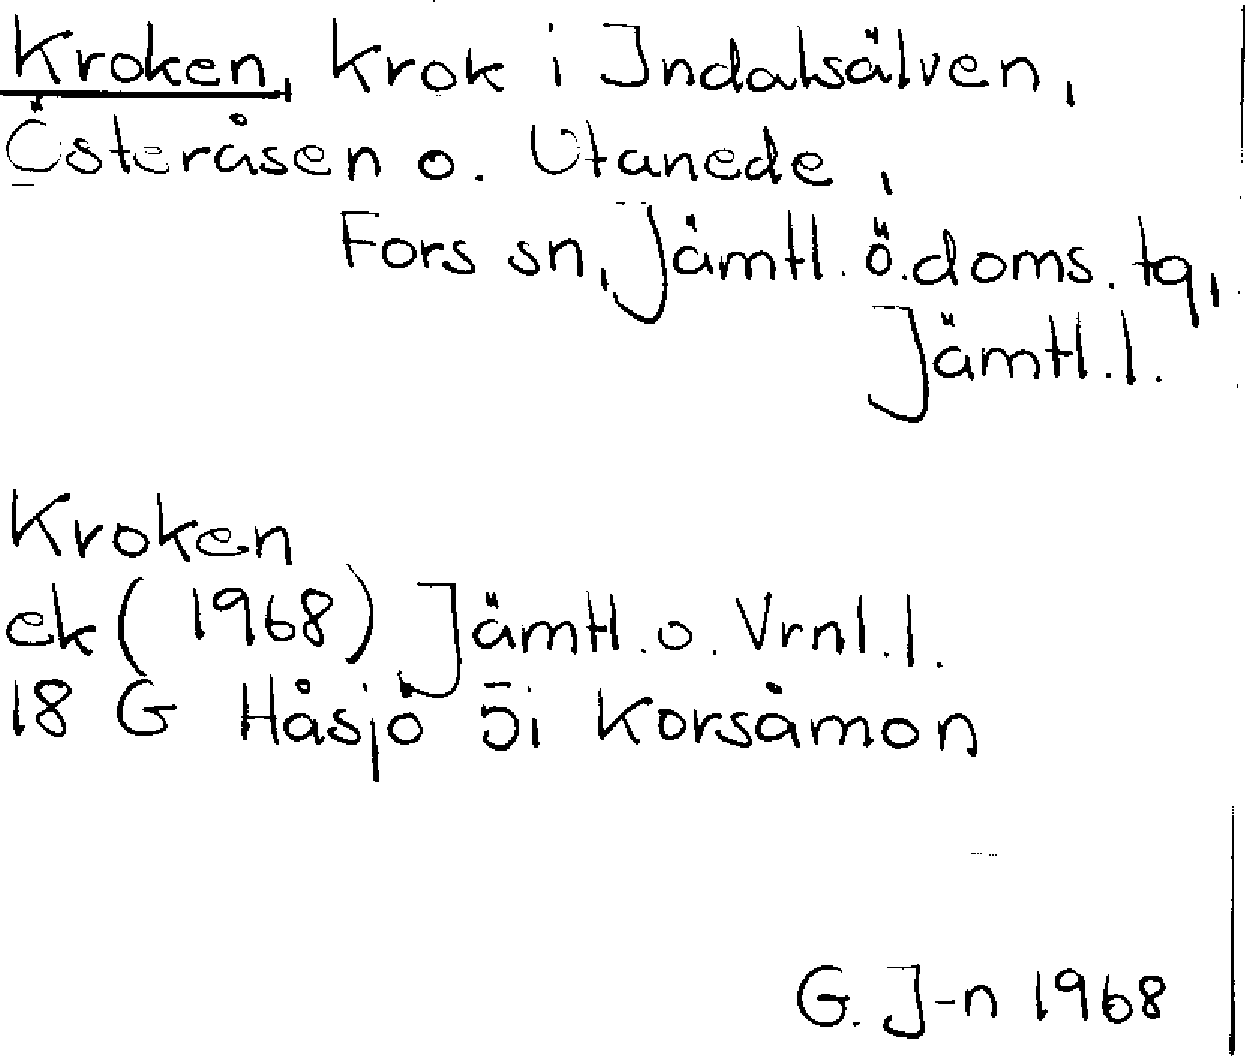 Kroken, krok i Indalsälven,
Österåsen o. Utanede,
Fors sn, Jämtl. ö. doms. tg,
Jämtl. l.
Kroken
ek ( 1968) Jämtl. o. Vrnl. l.
18 G Håsjö 5i Korsåmon
G. J-n 1968